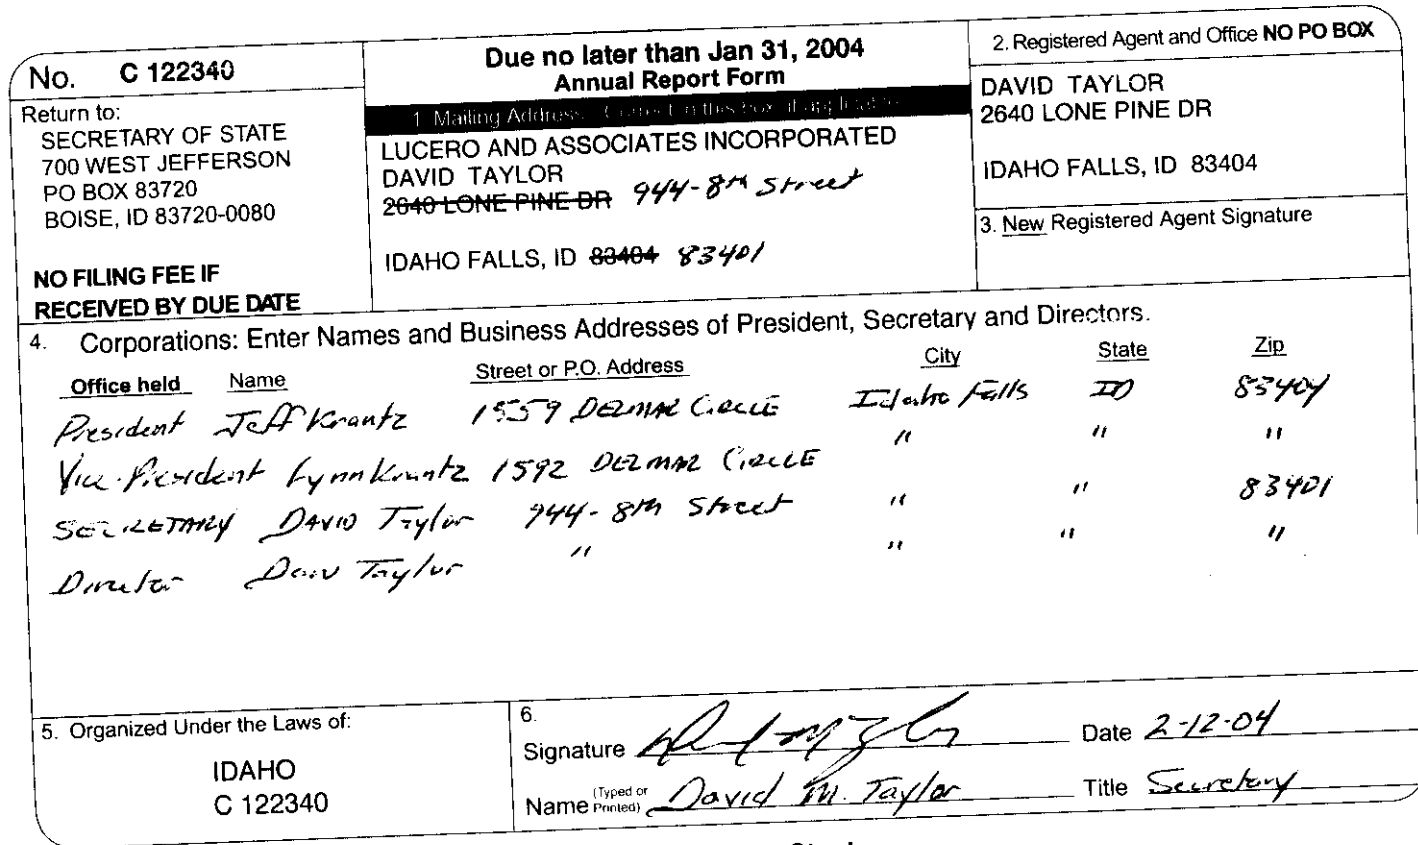 No. C 122340
Return to:
SECRETARY OF STATE
700 WEST JEFFERSON
PO BOX 83720
BOISE, ID 83720-0080
NO FILING FEE IF
RECEIVED BY DUE DATE
Due no later than Jan 31, 2004
Annual Report Form
1. Mailing Address: Correct in this box if applicable
LUCERO AND ASSOCIATES INCORPORATED
DAVID TAYLOR
2640 LONE PINE DR 944-8th Street
IDAHO FALLS, ID 83404 83401
2. Registered Agent and Office NO PO BOX
DAVID TAYLOR
2640 LONE PINE DR
IDAHO FALLS, ID 83404
3. New Registered Agent Signature
4. Corporations: Enter Names and Business Addresses of President, Secretary and Directors.
Office held Name Street or P.O. Address City State Zip
President Jeff Krantz 1559 DELMAR CIRCLE Idaho Falls ID 83404
Vice-President Lynn Krantz 1592 DELMAR CIRCLE " " "
SECRETARY DAVID Taylor 944-8th Street " " 83401
Director Taylor " " " "
5. Organized Under the Laws of:
IDAHO
C 122340
6.
Signature Date 2-12-04
Name (Typed or Printed) David M. Taylor Title Secretary